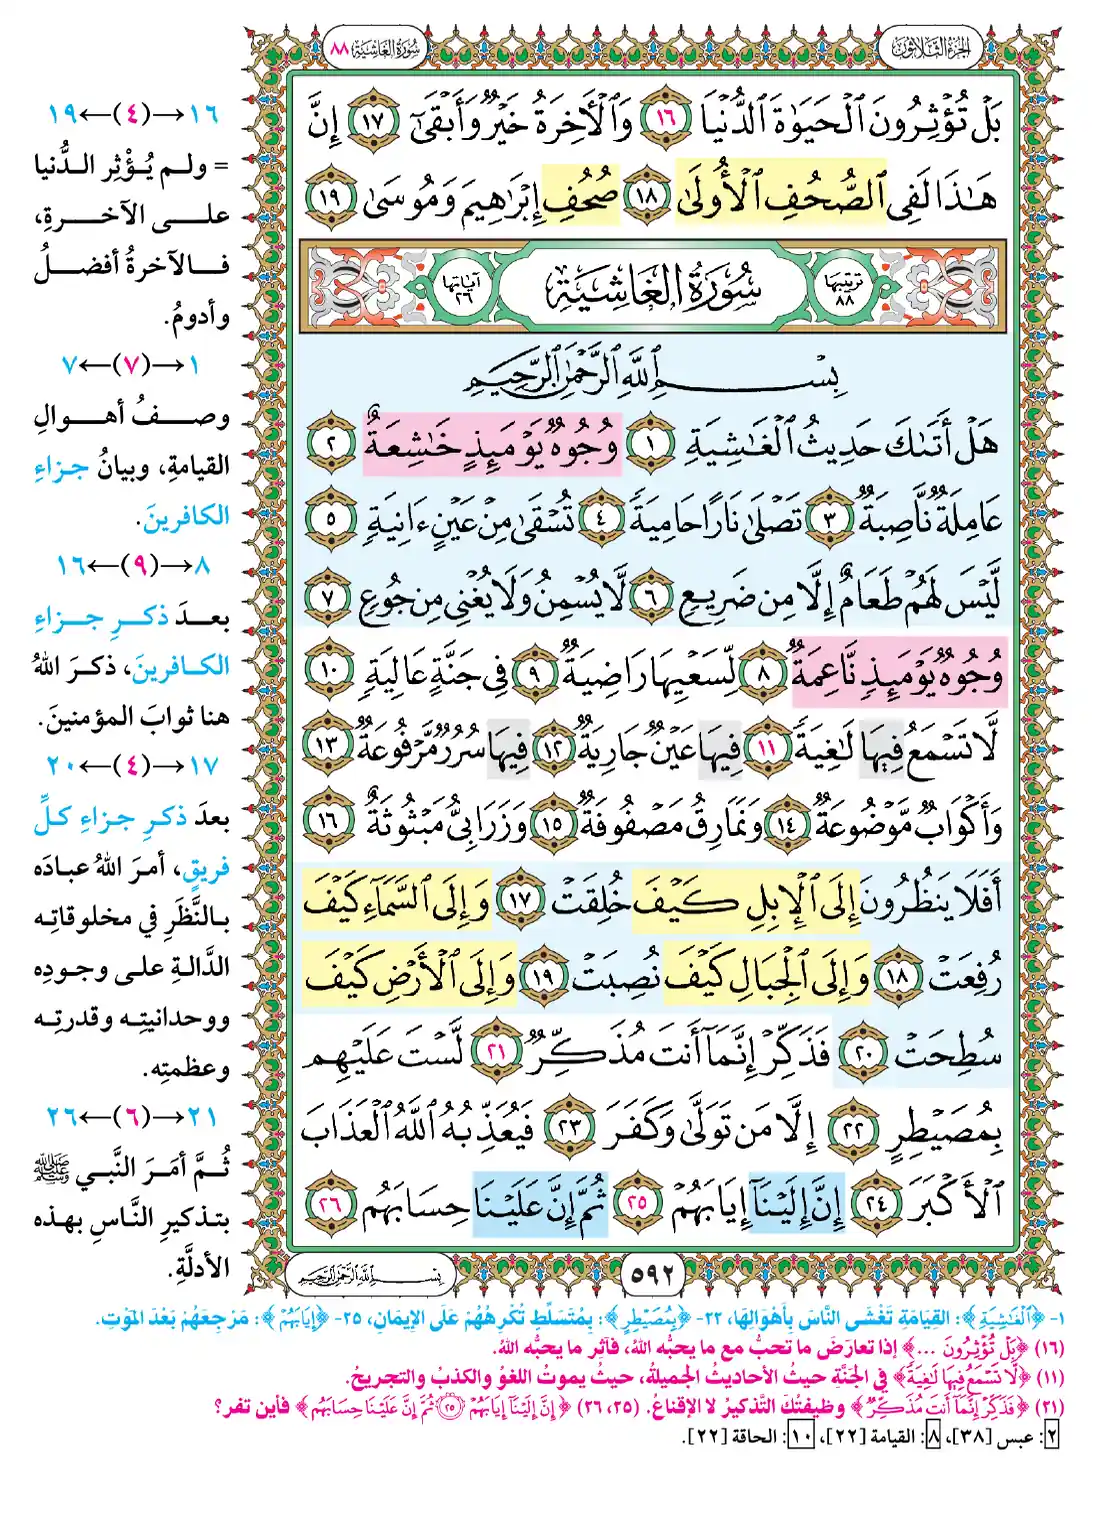 الجزء الثلاثون
سورة الغاشية ٨٨
بَلْ تُؤْثِرُونَ ٱلْحَيَوٰةَ ٱلدُّنْيَا ١٦ وَٱلْءَاخِرَةُ خَيْرٌ وَأَبْقَىٰٓ ١٧ إِنَّ
هَـٰذَا لَفِى ٱلصُّحُفِ ٱلْأُولَىٰ ١٨ صُحُفِ إِبْرَٰهِيمَ وَمُوسَىٰ ١٩
ترتيبها ٨٨ سُورَةُ الغَاشِيَةِ آياتها ٢٦
بِسْمِ ٱللَّهِ ٱلرَّحْمَـٰنِ ٱلرَّحِيمِ
هَلْ أَتَىٰكَ حَدِيثُ ٱلْغَـٰشِيَةِ ١ وُجُوهٌ يَوْمَئِذٍ خَـٰشِعَةٌ ٢
عَامِلَةٌ نَّاصِبَةٌ ٣ تَصْلَىٰ نَارًا حَامِيَةً ٤ تُسْقَىٰ مِنْ عَيْنٍ ءَانِيَةٍ ٥
لَّيْسَ لَهُمْ طَعَامٌ إِلَّا مِن ضَرِيعٍ ٦ لَّا يُسْمِنُ وَلَا يُغْنِى مِن جُوعٍ ٧
وُجُوهٌ يَوْمَئِذٍ نَّاعِمَةٌ ٨ لِّسَعْيِهَا رَاضِيَةٌ ٩ فِى جَنَّةٍ عَالِيَةٍ ١٠
لَّا تَسْمَعُ فِيهَا لَـٰغِيَةً ١١ فِيهَا عَيْنٌ جَارِيَةٌ ١٢ فِيهَا سُرُرٌ مَّرْفُوعَةٌ ١٣
وَأَكْوَابٌ مَّوْضُوعَةٌ ١٤ وَنَمَارِقُ مَصْفُوفَةٌ ١٥ وَزَرَابِىُّ مَبْثُوثَةٌ ١٦
أَفَلَا يَنظُرُونَ إِلَى ٱلْإِبِلِ كَيْفَ خُلِقَتْ ١٧ وَإِلَى ٱلسَّمَآءِ كَيْفَ
رُفِعَتْ ١٨ وَإِلَى ٱلْجِبَالِ كَيْفَ نُصِبَتْ ١٩ وَإِلَى ٱلْأَرْضِ كَيْفَ
سُطِحَتْ ٢٠ فَذَكِّرْ إِنَّمَآ أَنتَ مُذَكِّرٌ ٢١ لَّسْتَ عَلَيْهِم
بِمُصَيْطِرٍ ٢٢ إِلَّا مَن تَوَلَّىٰ وَكَفَرَ ٢٣ فَيُعَذِّبُهُ ٱللَّهُ ٱلْعَذَابَ
ٱلْأَكْبَرَ ٢٤ إِنَّ إِلَيْنَآ إِيَابَهُمْ ٢٥ ثُمَّ إِنَّ عَلَيْنَا حِسَابَهُم ٢٦
٥٩٢
بِسْمِ ٱللَّهِ ٱلرَّحْمَـٰنِ ٱلرَّحِيمِ
١٦→(٤)←١٩
= ولم يُؤْثِرِ الدُّنيا
على الآخرةِ،
فالآخرةُ أفضلُ
وأدومُ.
١→(٧)←٧
وصفُ أهوالِ
القيامةِ، وبيانُ جزاءِ
الكافرينَ.
٨→(٩)←١٦
بعدَ ذكرِ جزاءِ
الكافرينَ، ذكرَ اللهُ
هنا ثوابَ المؤمنينَ.
١٧→(٤)←٢٠
بعدَ ذكرِ جزاءِ كلِّ
فريقٍ، أمرَ اللهُ عبادَه
بالنَّظَرِ في مخلوقاتِه
الدَّالةِ على وجودِه
ووحدانيتِه وقدرتِه
وعظمتِه.
٢١→(٦)←٢٦
ثُمَّ أمَرَ النَّبي ﷺ
بتذكيرِ النَّاسِ بهذه
الأدلَّةِ.
١- ﴿ٱلْغَـٰشِيَةِ﴾: القِيَامَةِ تَغْشَى النَّاسَ بِأَهْوَالِهَا، ٢٢- ﴿بِمُصَيْطِرٍ﴾: بِمُتَسَلِّطٍ تُكْرِهُهُمْ عَلَى الإِيمَانِ، ٢٥- ﴿إِيَابَهُمْ﴾: مَرْجِعَهُمْ بَعْدَ المَوْتِ.
(١٦) ﴿بَلْ تُؤْثِرُونَ ...﴾ إذا تعارَضَ ما تحبُّ مع ما يحبُّه اللهُ، فآثر ما يحبُّه اللهُ.
(١١) ﴿لَّا تَسْمَعُ فِيهَا لَـٰغِيَةً﴾ في الجَنَّةِ حيثُ الأحاديثُ الجميلةُ، حيثُ يموتُ اللغوُ والكذبُ والتجريحُ.
(٢١) ﴿فَذَكِّرْ إِنَّمَآ أَنتَ مُذَكِّرٌ﴾ وظيفتُكَ التَّذكيرُ لا الإقناعُ. (٢٥، ٢٦) ﴿إِنَّ إِلَيْنَآ إِيَابَهُمْ ٢٥ ثُمَّ إِنَّ عَلَيْنَا حِسَابَهُم﴾ فأين تفر؟
٢: عبس [٣٨]، ٨: القيامة [٢٢]، ١٠: الحاقة [٢٢].